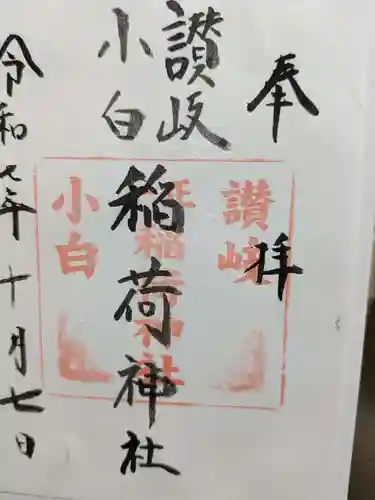 奉拝
讃岐
小白
稲荷神社
令和七年十月七日
讃岐
稲荷神社
小白